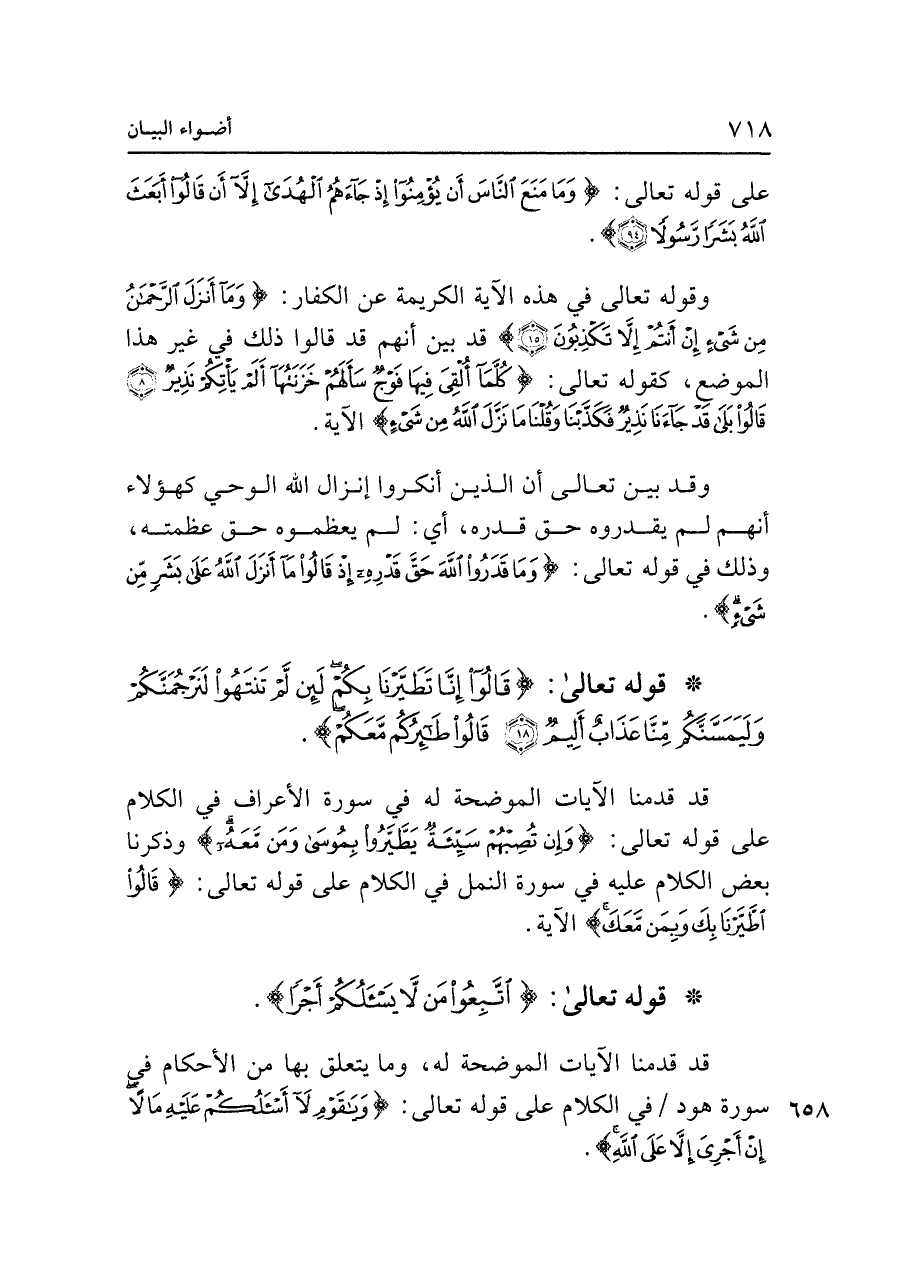 ٧١٨ أضـواء البيـان
على قوله تعالى: ﴿ وَمَا مَنَعَ ٱلنَّاسَ أَن يُؤۡمِنُوٓاْ إِذۡ جَآءَهُمُ ٱلۡهُدَىٰٓ إِلَّآ أَن قَالُوٓاْ أَبَعَثَ
ٱللَّهُ بَشَرٗا رَّسُولٗا ۝٩٤﴾ .
وقوله تعالى في هذه الآية الكريمة عن الكفار: ﴿ وَمَآ أَنزَلَ ٱلرَّحۡمَٰنُ
مِن شَيۡءٍ إِنۡ أَنتُمۡ إِلَّا تَكۡذِبُونَ ۝١٥﴾ قد بين أنهم قد قالوا ذلك في غير هذا
الموضع، كقوله تعالى: ﴿ كُلَّمَآ أُلۡقِيَ فِيهَا فَوۡجٞ سَأَلَهُمۡ خَزَنَتُهَآ أَلَمۡ يَأۡتِكُمۡ نَذِيرٞ ۝٨
قَالُواْ بَلَىٰ قَدۡ جَآءَنَا نَذِيرٞ فَكَذَّبۡنَا وَقُلۡنَا مَا نَزَّلَ ٱللَّهُ مِن شَيۡءٍ﴾ الآية .
وقـد بيـن تعـالـى أن الـذيـن أنكـروا إنـزال الله الـوحـي كهـؤلاء
أنهـم لـم يقـدروه حـق قـدره، أي: لـم يعظمـوه حـق عظمتـه،
وذلك في قوله تعالى: ﴿ وَمَا قَدَرُواْ ٱللَّهَ حَقَّ قَدۡرِهِۦٓ إِذۡ قَالُواْ مَآ أَنزَلَ ٱللَّهُ عَلَىٰ بَشَرٖ مِّن
شَيۡءٖۗ﴾ .
* قوله تعالىٰ: ﴿ قَالُوٓاْ إِنَّا تَطَيَّرۡنَا بِكُمۡۖ لَئِن لَّمۡ تَنتَهُواْ لَنَرۡجُمَنَّكُمۡ
وَلَيَمَسَّنَّكُم مِّنَّا عَذَابٌ أَلِيمٞ ۝١٨ قَالُواْ طَٰٓئِرُكُم مَّعَكُمۡۚ﴾ .
قد قدمنا الآيات الموضحة له في سورة الأعراف في الكلام
على قوله تعالى: ﴿ وَإِن تُصِبۡهُمۡ سَيِّئَةٞ يَطَّيَّرُواْ بِمُوسَىٰ وَمَن مَّعَهُۥٓۗ ﴾ وذكرنا
بعض الكلام عليه في سورة النمل في الكلام على قوله تعالى: ﴿ قَالُواْ
ٱطَّيَّرۡنَا بِكَ وَبِمَن مَّعَكَۚ﴾ الآية .
* قوله تعالىٰ: ﴿ ٱتَّبِعُواْ مَن لَّا يَسۡـَٔلُكُمۡ أَجۡرٗا ﴾ .
قد قدمنا الآيات الموضحة له، وما يتعلق بها من الأحكام في
٦٥٨ سورة هود / في الكلام على قوله تعالى: ﴿ وَيَٰقَوۡمِ لَآ أَسۡـَٔلُكُمۡ عَلَيۡهِ مَالًاۖ
إِنۡ أَجۡرِيَ إِلَّا عَلَى ٱللَّهِۚ﴾ .